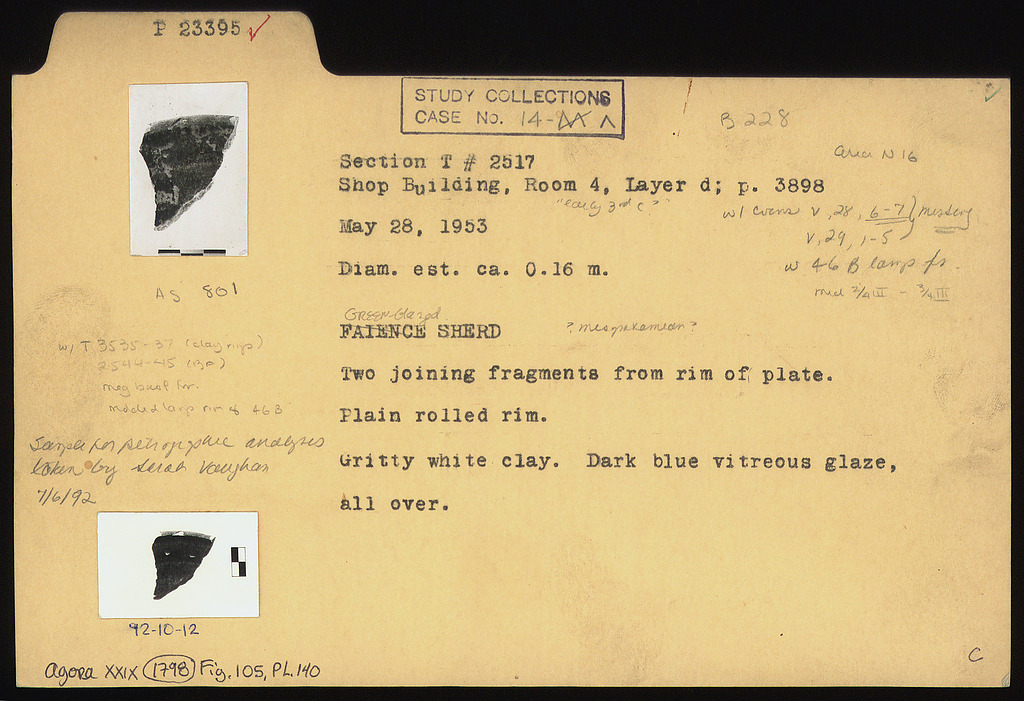 P 23395 ✓
STUDY COLLECTIONS
CASE No. 14-
B 228
area N 16
Section T # 2517
Shop Building, Room 4, Layer d; p. 3898
"early 3rd c?"
w/ coins V, 28, 6-7) missing
V, 29, 1-5
May 28, 1953
w 46 B lamp fr.
mid 2/4 III - 3/4 III
Diam. est. ca. 0.16 m.
AS 801
GREEN-Glazed
FAIENCE SHERD
? mesopotamian ?
w/ T 3535-37 (clay
2544-45
meg bowl fr.
lamp rim & 46B
Two joining fragments from rim of plate.
Plain rolled rim.
Sample for petrographic analyses
taken by Sarah Vaughan
7/6/92
Gritty white clay. Dark blue vitreous glaze,
all over.
92-10-12
Agora XXIX 1798 Fig. 105, PL. 140
C